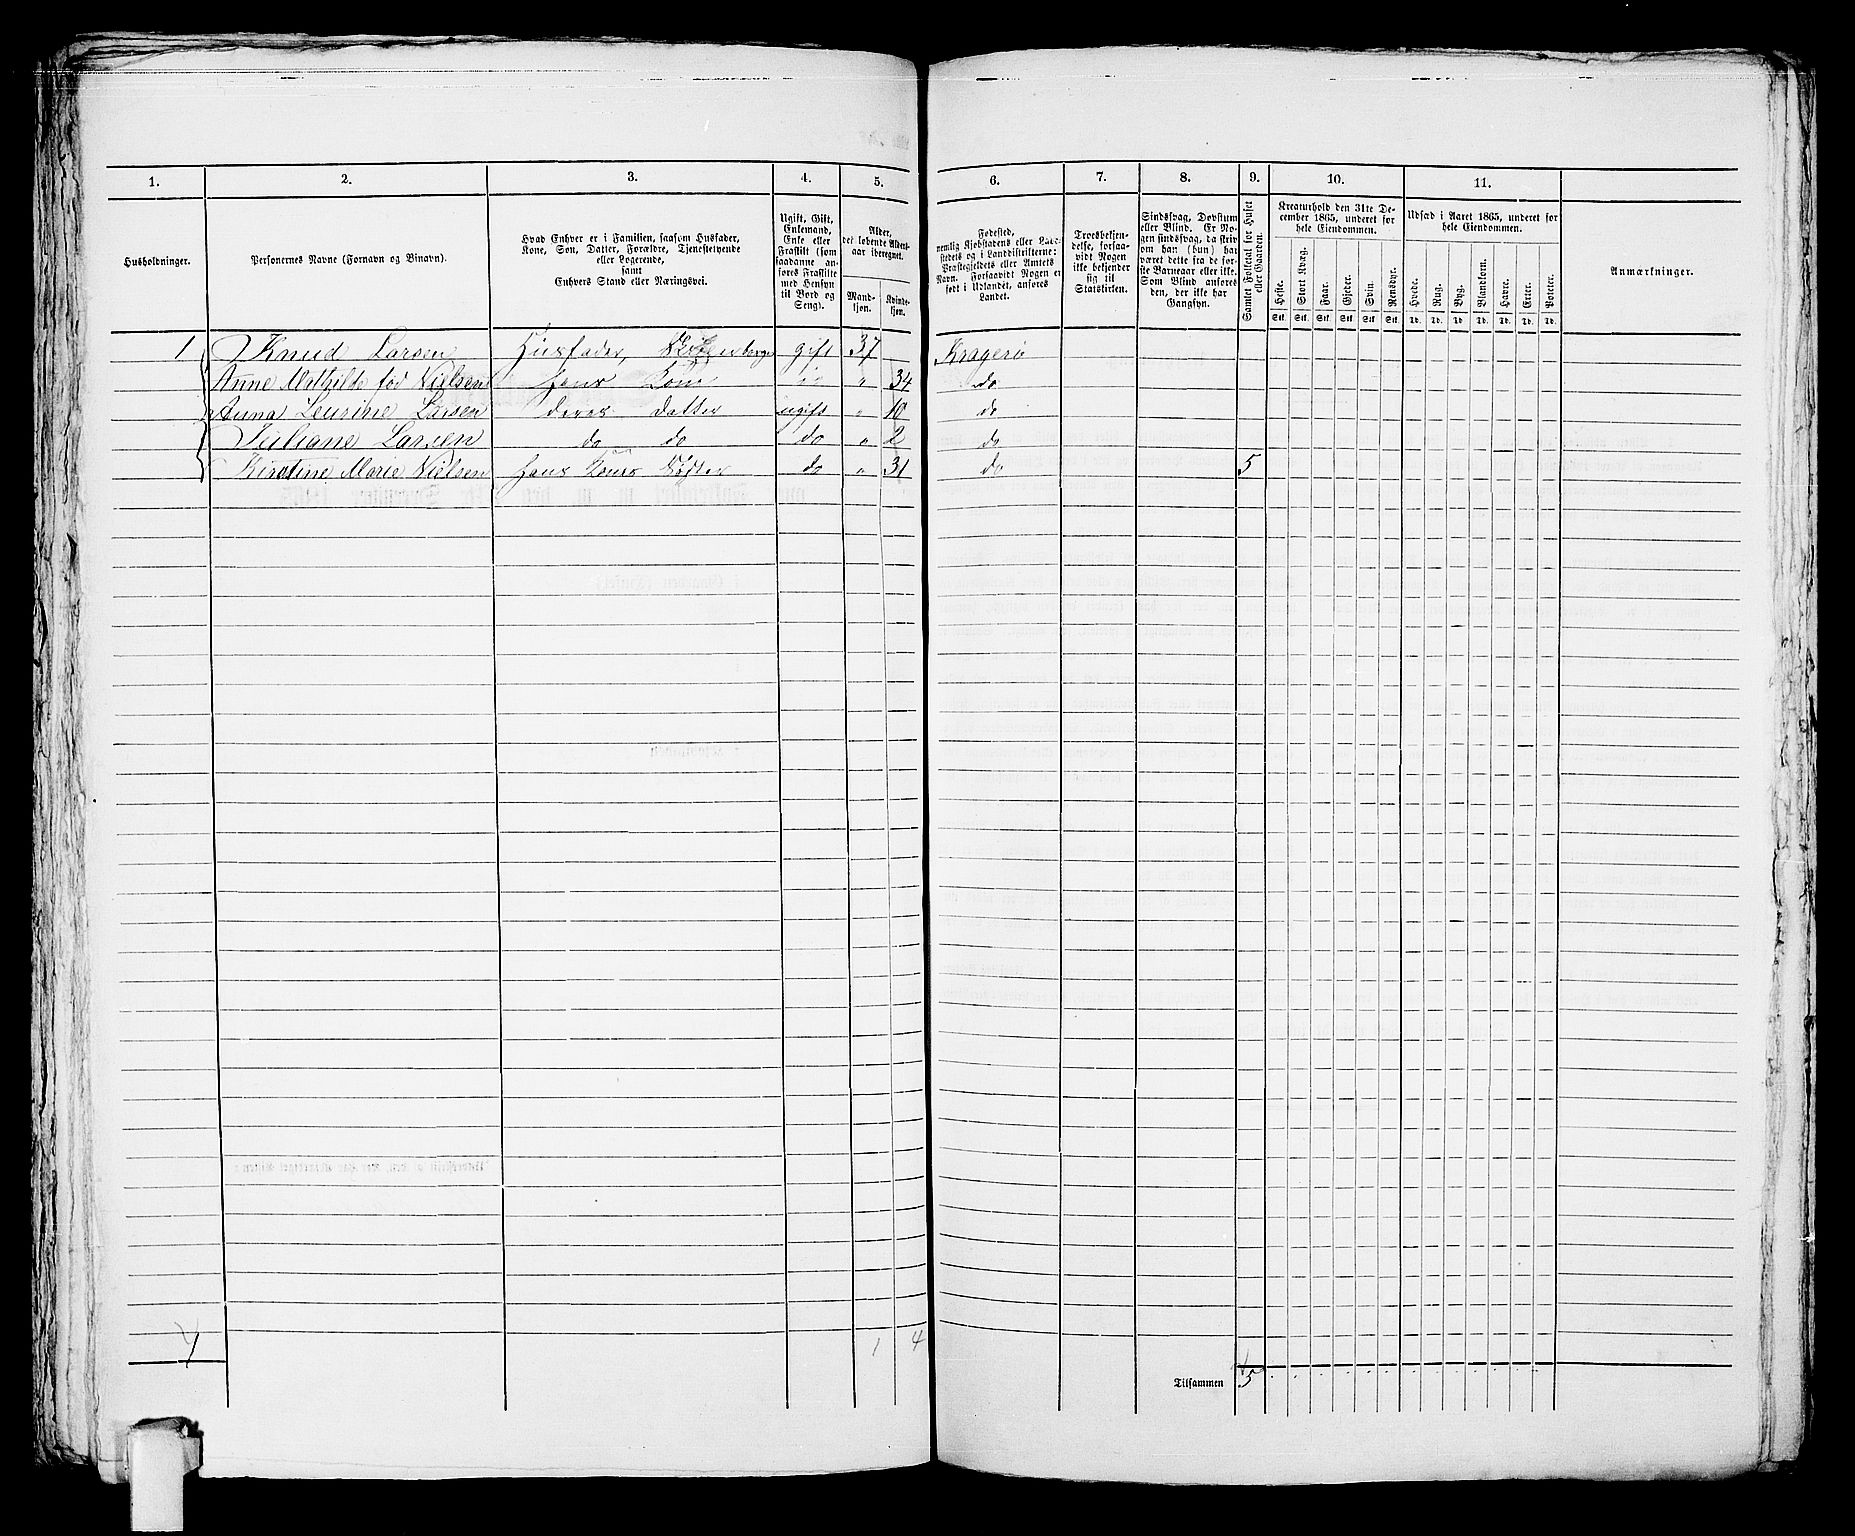 1.
2.
3.
4.
5.
6.
7.
8.
9.
10.
11.
Husholdninger.
Personernes Navne (Fornavn og Binavn).
Hvad Enhver er i Familien, saasom Husfader,
Kone, Søn, Datter, Forældre, Tjenestetyende
eller Logerende,
samt
Enhvers Stand eller Næringsvei.
Ugift, Gift,
Enkemand,
Enke eller
Fraskilt (som
saadanne an-
føres Fraskilte
med Hensyn
til Bord og
Seng).
Alder,
det løbende Alders-
aar iberegnet.
Mand-
kjøn.
Kvinde-
kjøn.
Fødested,
nemlig Kjøbstadens eller Lade-
stedets og i Landdistrikterne:
Præstegjeldets eller Amtets
Navn. Forsaavidt Nogen er
født i Udlandet, anføres
Landet.
Troesbekjen-
delse, forsaa-
vidt Nogen
ikke bekjender
sig til
Statskirken.
Sindssvag, Døvstum
eller Blind. Er No-
gen sindssvag, da skriv
om han (hun) har
været dette fra de før-
ste Barneaar eller ikke.
Som Blind anføres
den, der ikke har
Gangsyn.
Samlet Folketal for Huset
eller Gaarden.
Kreaturhold den 31te De-
cember 1865, underet for
hele Eiendommen.
Heste.
Stort Kvæg.
Faar.
Gjeder.
Svin.
Rensdyr.
Stk. Stk. Stk. Stk. Stk. Stk.
Udsæd i Aaret 1865, underet for
hele Eiendommen.
Hvede.
Rug.
Byg.
Blandkorn.
Havre.
Erter.
Poteter.
Td. Td. Td. Td. Td. Td. Td.
Anmærkninger.
1 Knud Larsen Husfader, gift 37 Kragerø
Anne Mathilde fød Nielsen Hans Kone 34 do
Anna Leurine Larsen deres Datter ugift " 10 do
Juliane Larsen do do do " 2 do
Kirstine Marie Nielsen Hans Kones Søster do " 31 do 5
1 4
Tilsammen 5